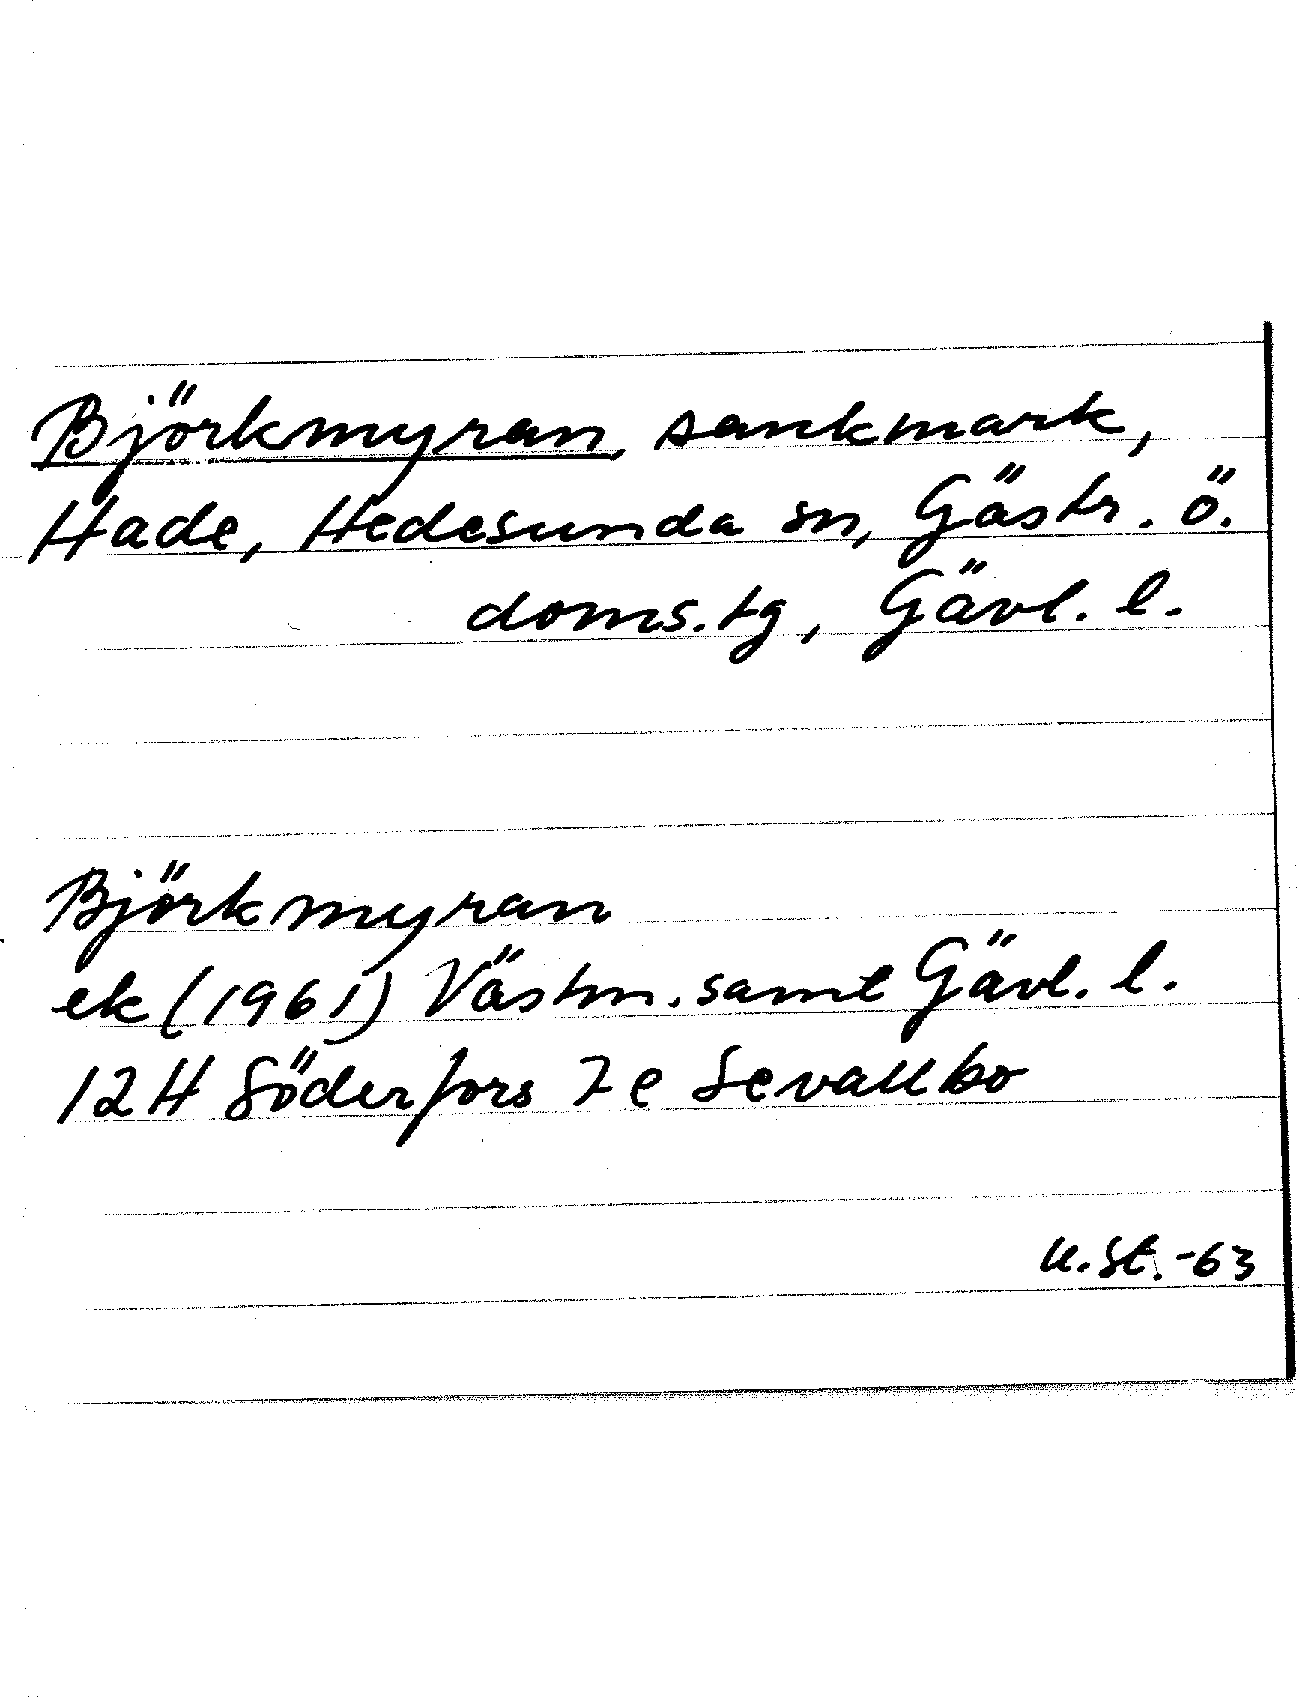 Björkmyran, sankmark,
Hade, Hedesunda sn, Gästr. ö.
doms.tg, Gävl. l.
Björkmyran
ek (1961) Västm. samt Gävl. l.
12H Söderfors 7 e Sevallbo
U.St.-63